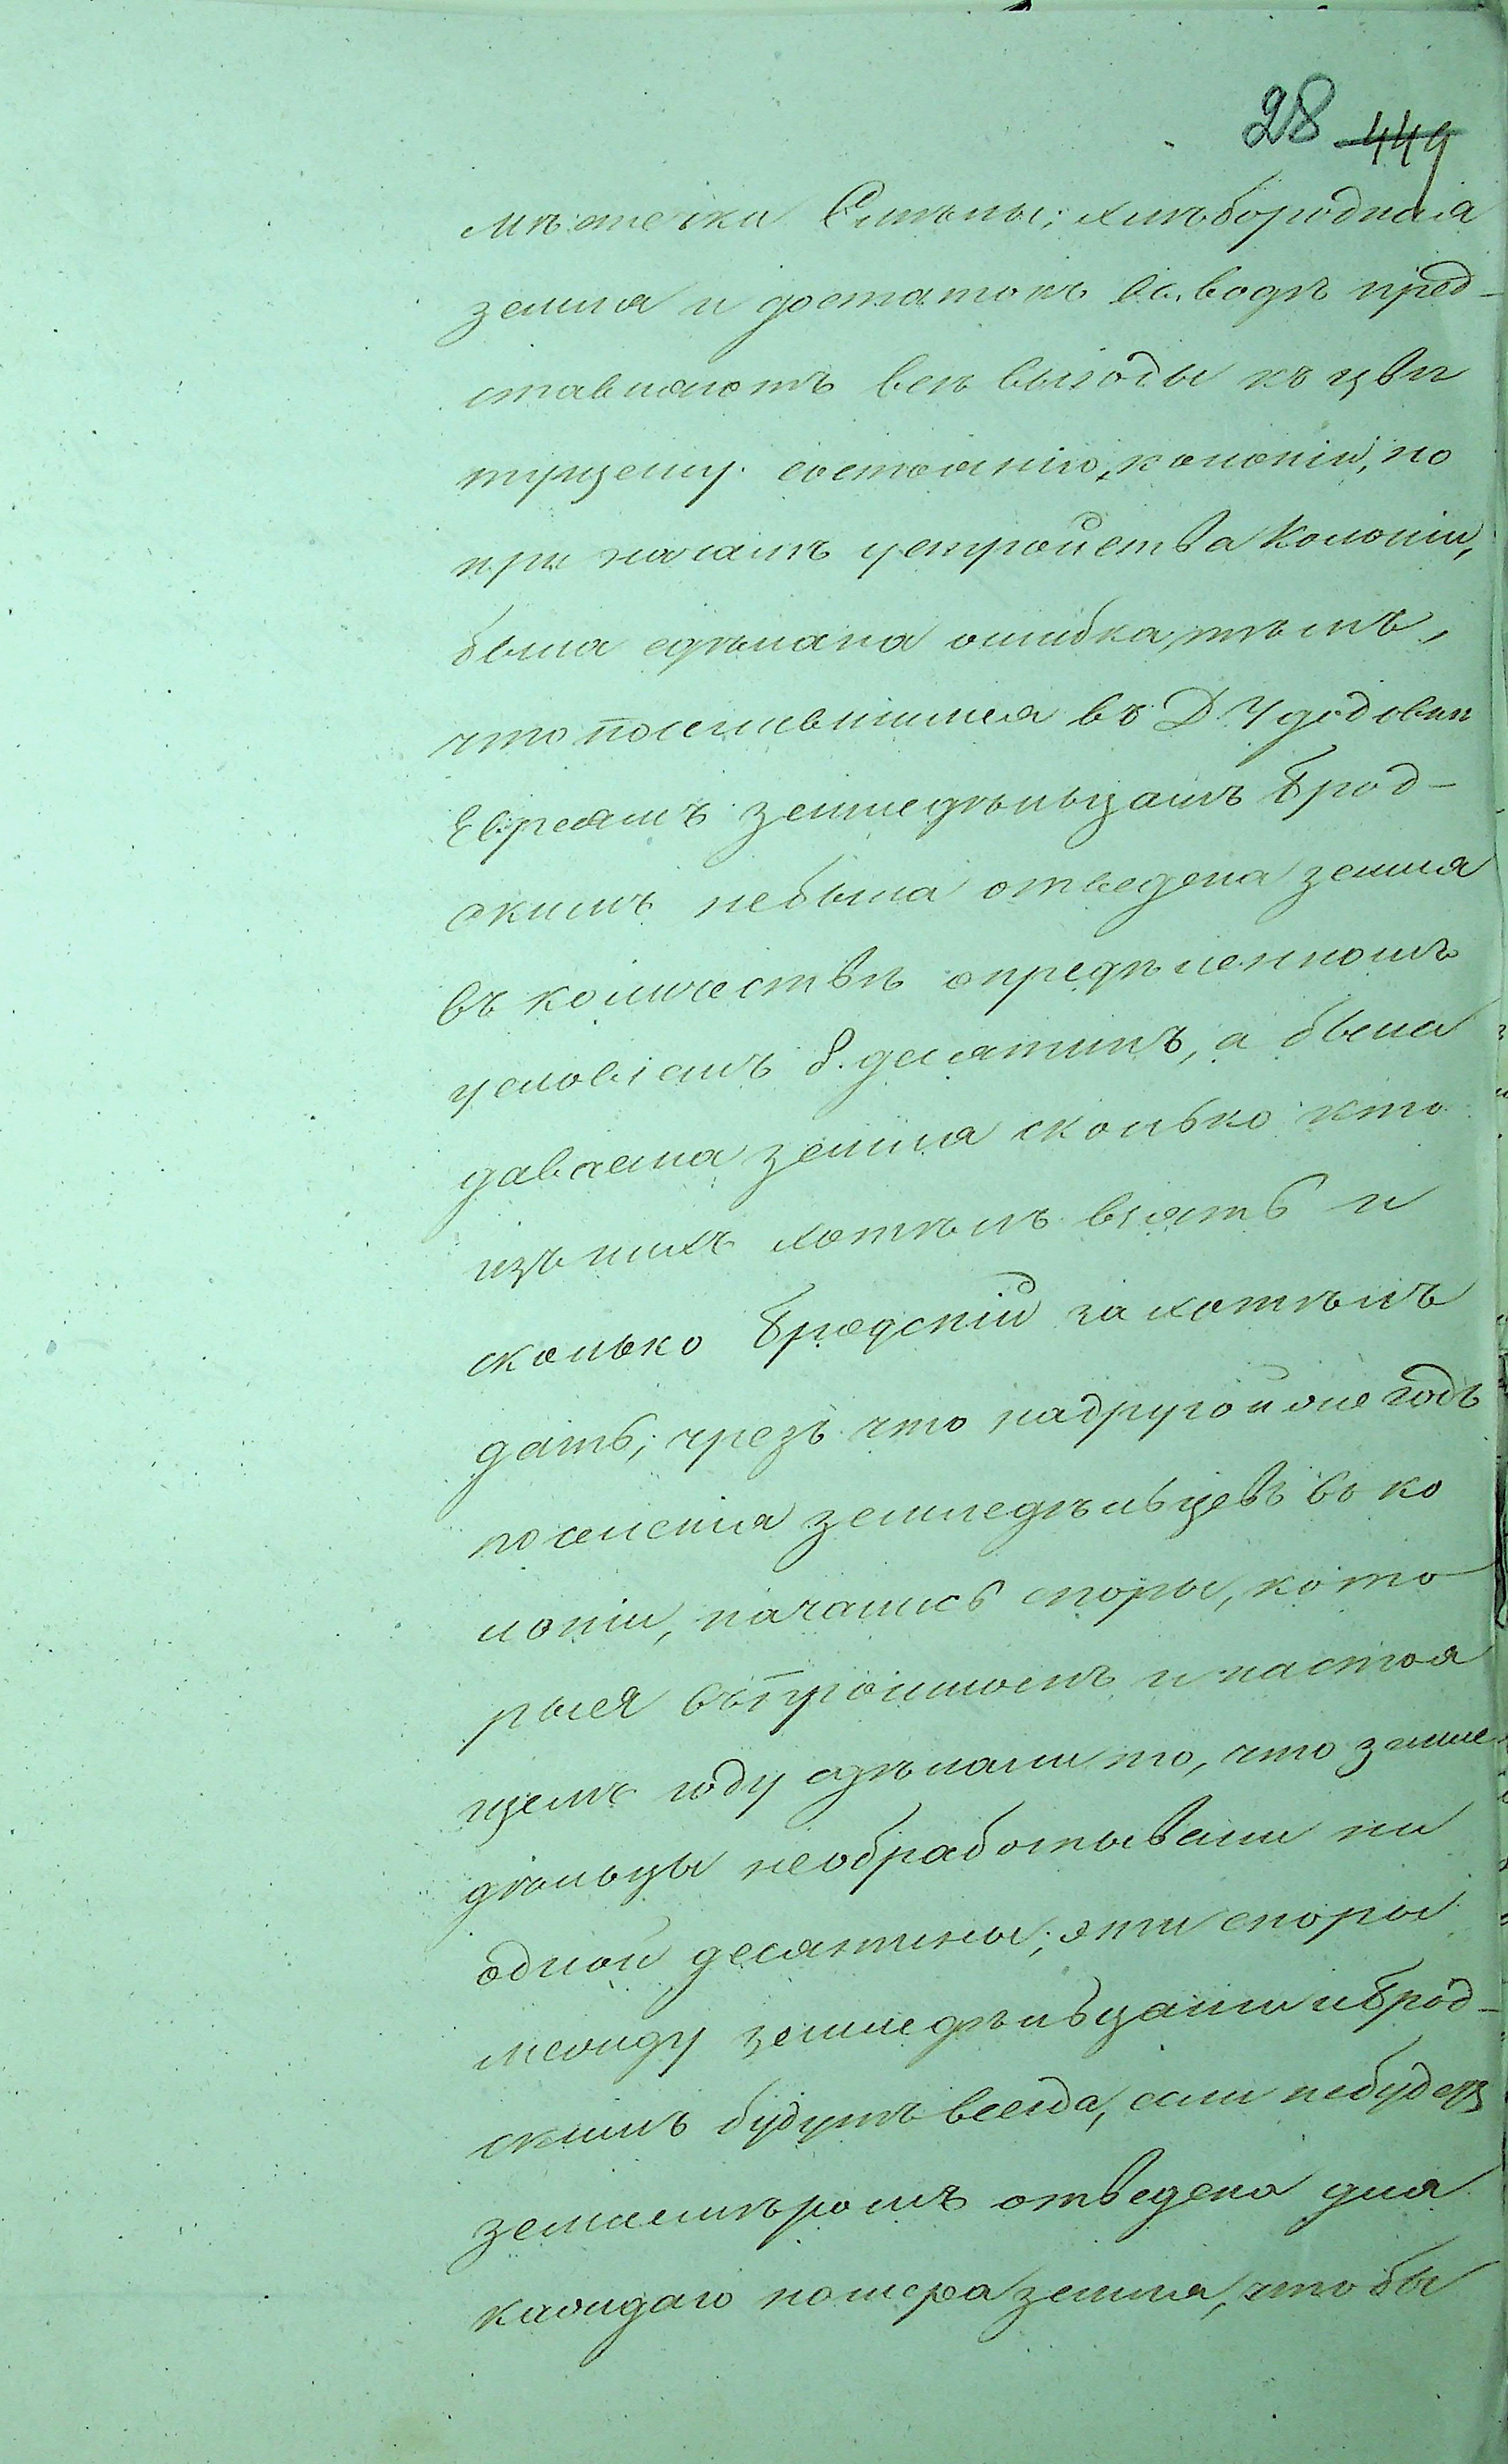 28 449
мѣстечка Смѣлы; хлѣбородная
земля и достатокъ въ водѣ пред-
ставляютъ всѣ выгоды къ цвѣ
тущему состоянію, колоніи, но
при началѣ устройства Колоніи,
была сдѣлана ошибка, тѣмъ,
что поселившимся въ Д.
Евреямъ земледѣльцамъ Брод-
скимъ небыла отведена земля
въ количествѣ опредѣленномъ
условіемъ 8. десятинъ, а была
даваема земля сколько кто
изъ нихъ хотѣлъ взять и
сколько Бродскій захотѣлъ
дать; чрезъ что надругой же годъ
поселенія земледѣльцевъ въ ко
лоніи, начались споры, кото
рыея въ прошломъ и настоя
щемъ году сдѣлали то, что земле
дѣльцы необработывали ни
одной десятины; эти споры
между земледѣльцами и Брод-
скимъ будутъ всегда, если небудетъ
землемѣромъ отведена для
каждаго номера земля, чтобы